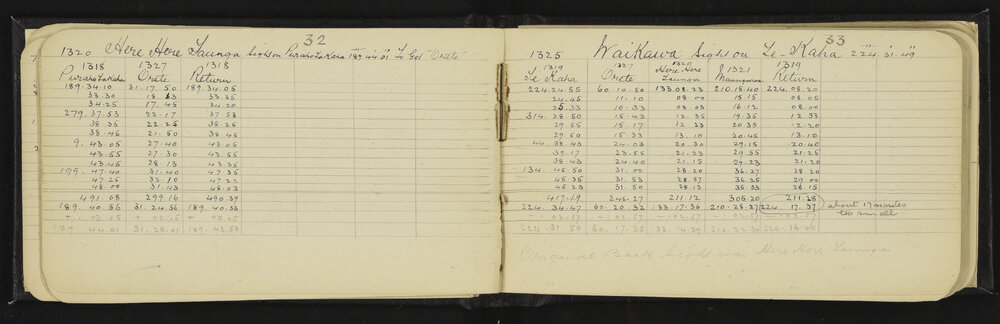 32
1320 Here Here Taunga Sight on Puraho Te Kaha 189°.44'.01" To Get "Orete"
1318 1327 1318
Puraho Te Kaha Orete Return
189.34.10 31.17.50 189.34.05
33.30 18.13 33.35
34.25 17.45 34.20
279.37.53 22.17 37.53
38.35 22.25 38.25
38.45 21.50 38.45
9.43.05 27.40 43.05
43.55 27.30 43.55
43.45 28.13 43.35
199.47.40 31.40 47.35
47.25 32.10 47.23
48.00 31.43 48.03
491.08 299.16 490.39
189.40.56 31.24.56 189.40.53
+ .03.05 + .03.05 + 03.05
189.44.01 31.28.01 189.43.58
33
1325 Waikawa Sight on Te-Kaha 224.31.49
1319 1327 1320 1321 1319
Te Kaha Orete Here Here Taunga Maungaroa Return
224.24.55 60.10.50 133.08.23 210.15.40 224.08.20
24.45 11.10 08.00 15.15 08.05
25.33 10.33 08.03 16.12 08.00
314.28.50 15.43 12.35 19.35 12.33
29.55 15.17 12.23 20.35 12.20
29.50 15.33 13.10 20.45 13.10
44.38.43 24.03 20.30 29.15 20.40
39.17 23.55 21.23 29.55 21.25
38.43 24.40 21.15 29.23 21.20
134.45.50 31.00 28.20 36.27 28.20
45.35 31.53 28.57 36.25 29.00
45.23 31.50 28.13 35.53 28.15
417.19 246.27 211.12 305.20 211.28
224.34.47 60.20.32 133.17.36 210.25.27 224 17.37 about 17 minutes too small
- .02.57 - .02.57 - .02.57 - .02.57 - .02.57
224.31.50 60.17.35 133.14.39 210.22.30 224.14.40
Original Back Sight was Here Here Taunga